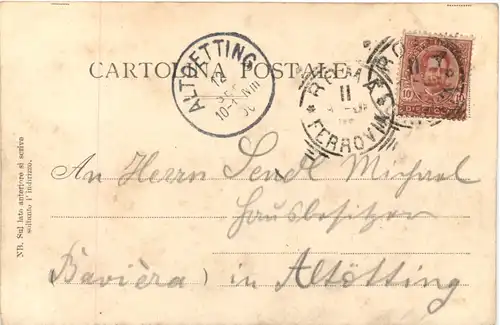 CARTOLINA POSTALE
ALTOETTING
12
SEP
ROMA
11
FERROVIA
10
NB. Sul lato anteriore si scrive
soltanto l'indirizzo.
An Herrn Sendl Michael
Hausbesitzer
(Bavièra) in Altötting